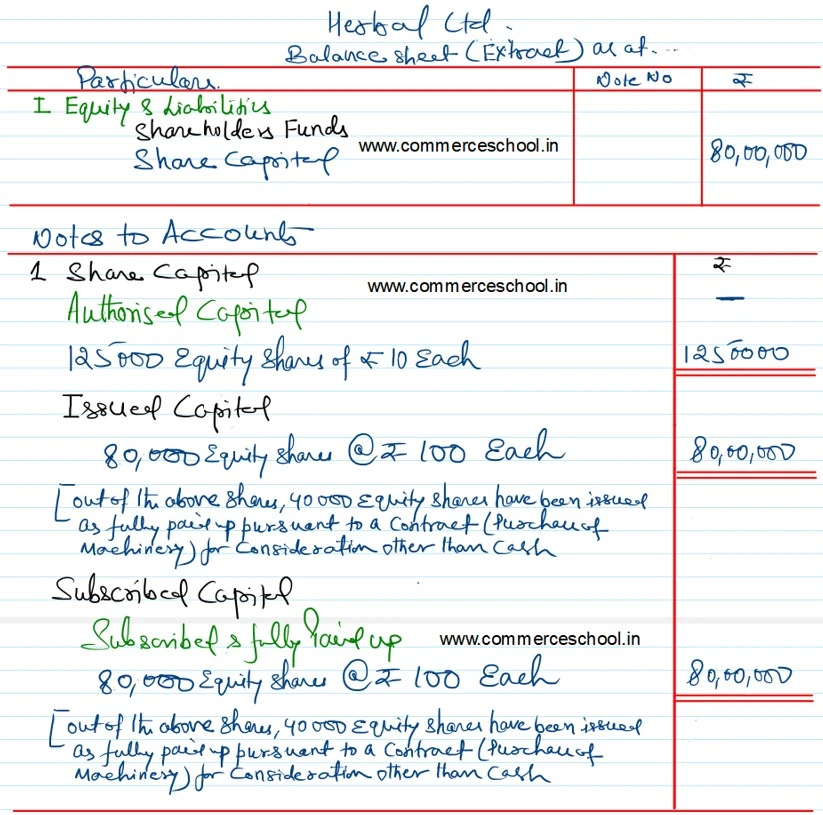 Herbal Ltd.
Balance sheet (Extract) as at....
Particulars. Note No ₹
I Equity & Liabilities
Shareholders Funds
Share Capital www.commerceschool.in 80,00,000
Notes to Accounts
1 Share Capital ₹
www.commerceschool.in
Authorised Capital —
125000 Equity Shares of ₹ 10 Each 1250000
Issued Capital
80,000 Equity shares @ ₹ 100 Each 80,00,000
[out of the above shares, 40000 Equity shares have been issued
as fully paid up pursuant to a Contract (Purchase of
Machinery) for Consideration other than Cash
Subscribed Capital
Subscribed & fully Paid up www.commerceschool.in
80,000 Equity shares @ ₹ 100 Each 80,00,000
[out of the above shares, 40000 Equity shares have been issued
as fully paid up pursuant to a Contract (Purchase of
Machinery) for Consideration other than Cash